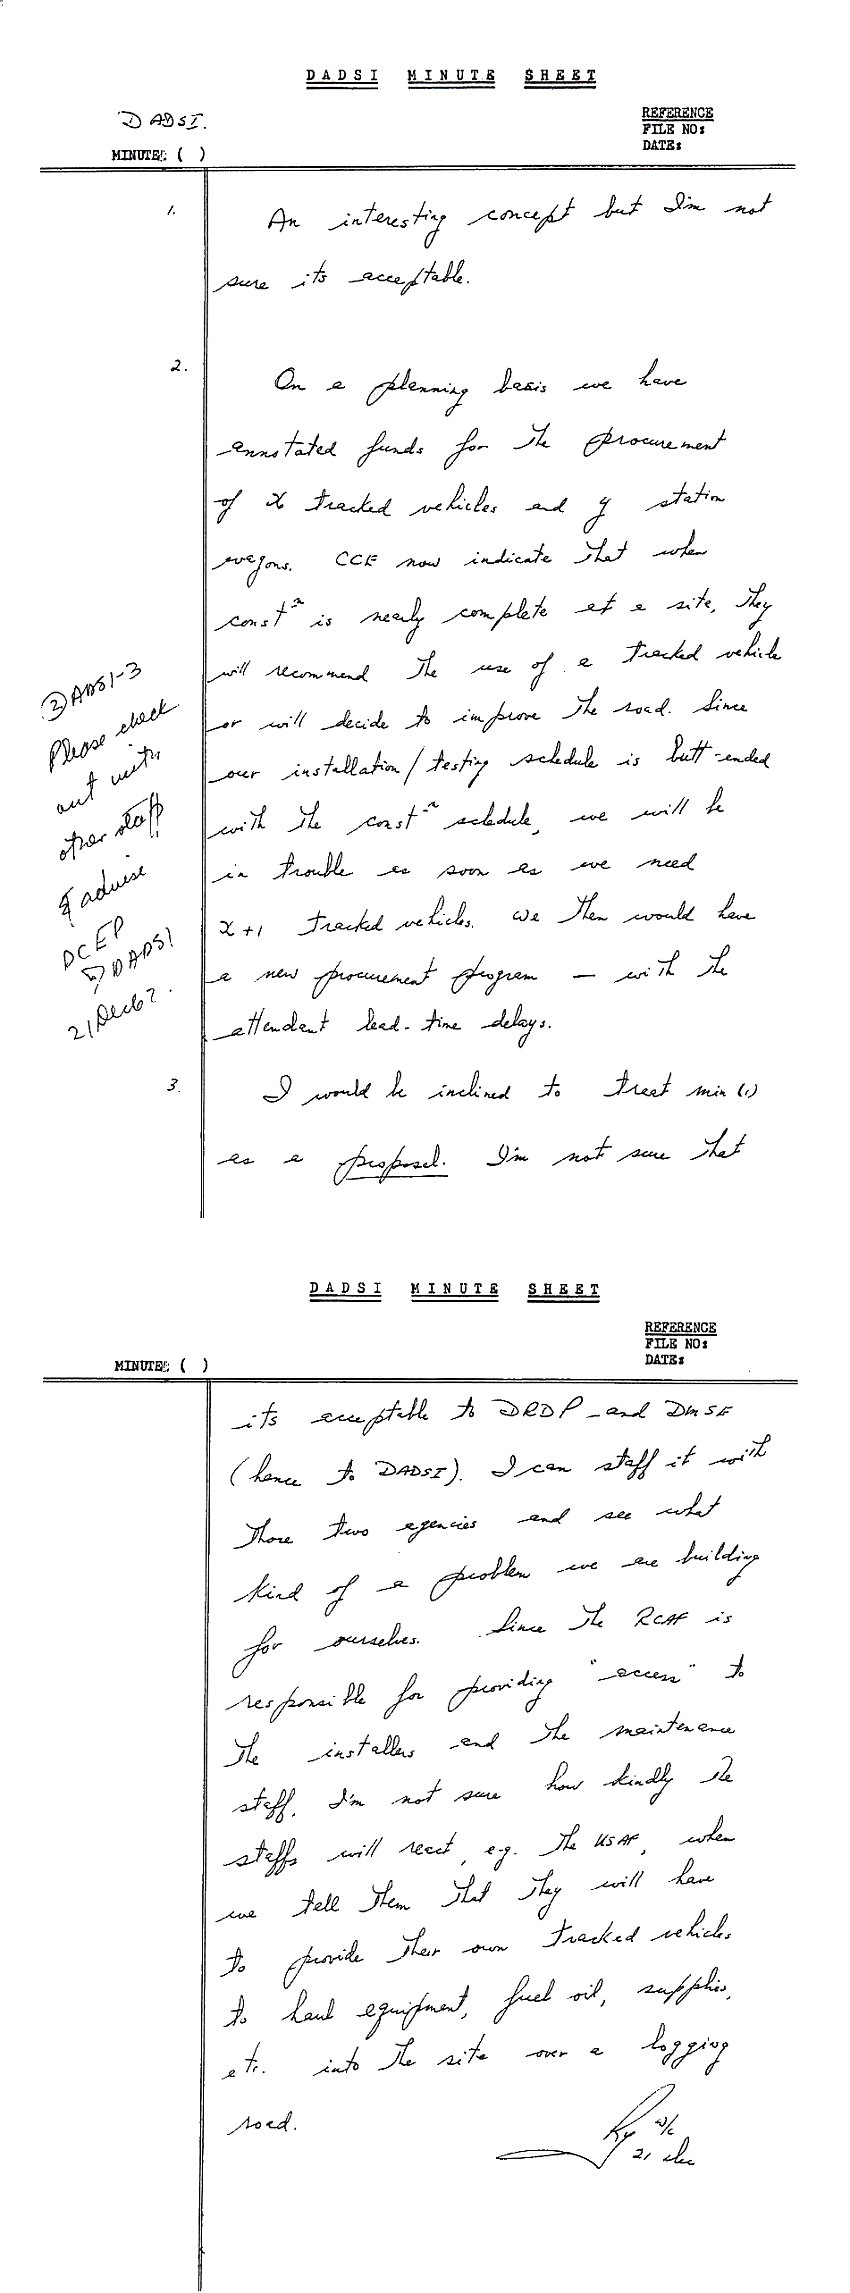 DADSI MINUTE SHEET
DADSI.
REFERENCE
FILE NO:
DATE:
MINUTE: ( )
1.
An interesting concept but I'm not
sure its acceptable.
2.
On a planning basis we have
annotated funds for the procurement
of x tracked vehicles and y station
wagons. CCE now indicate that when
constⁿ is nearly complete at a site, they
will recommend the use of a tracked vehicle
or will decide to improve the road. Since
our installation/testing schedule is butt-ended
with the constⁿ schedule, we will be
in trouble as soon as we need
x+1 tracked vehicles. We then would have
a new procurement program — with the
attendant lead-time delays.
3.
I would be inclined to treat min (1)
as a proposal. I'm not sure that
② DADSI-3
Please check
out with
other staff
& advise
DCEP
DADSI
21 Dec 62.
DADSI MINUTE SHEET
REFERENCE
FILE NO:
DATE:
MINUTE: ( )
its acceptable to DRDP and DMSE
(hence to DADSI). I can staff it with
those two agencies and see what
kind of a problem we are building
for ourselves. Since the RCAF is
responsible for providing "access" to
the installers and the maintenance
staff, I'm not sure how kindly the
staffs will react, e.g. the USAF, when
we tell them that they will have
to provide their own tracked vehicles
to haul equipment, fuel oil, supplies,
etc. into the site over a logging
road.
W/C
21 Dec